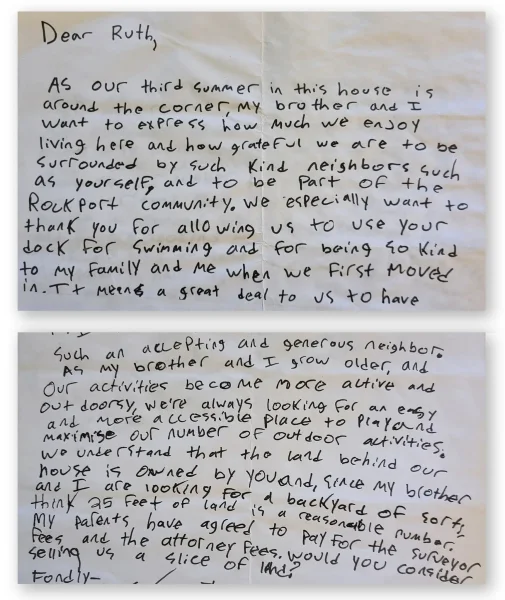 Dear Ruth,
As our third summer in this house is
around the corner, my brother and I
want to express how much we enjoy
living here and how grateful we are to be
surrounded by such kind neighbors such
as yourself, and to be part of the
Rockport community. We especially want to
thank you for allowing us to use your
dock for swimming and for being so kind
to my family and me when we first moved
in. It means a great deal to us to have
such an accepting and generous neighbor.
As my brother and I grow older, and
our activities become more active and
outdoorsy, we're always looking for an easy
and more accessible place to play and
maximise our number of outdoor activities.
We understand that the land behind our
house is owned by you and, since my brother
and I are looking for a backyard of sorts,
think 25 feet of land is a reasonable number.
My parents, have agreed to pay for the surveyor
fees and the attorney fees. Would you consider
selling us a slice of land?
Fondly-